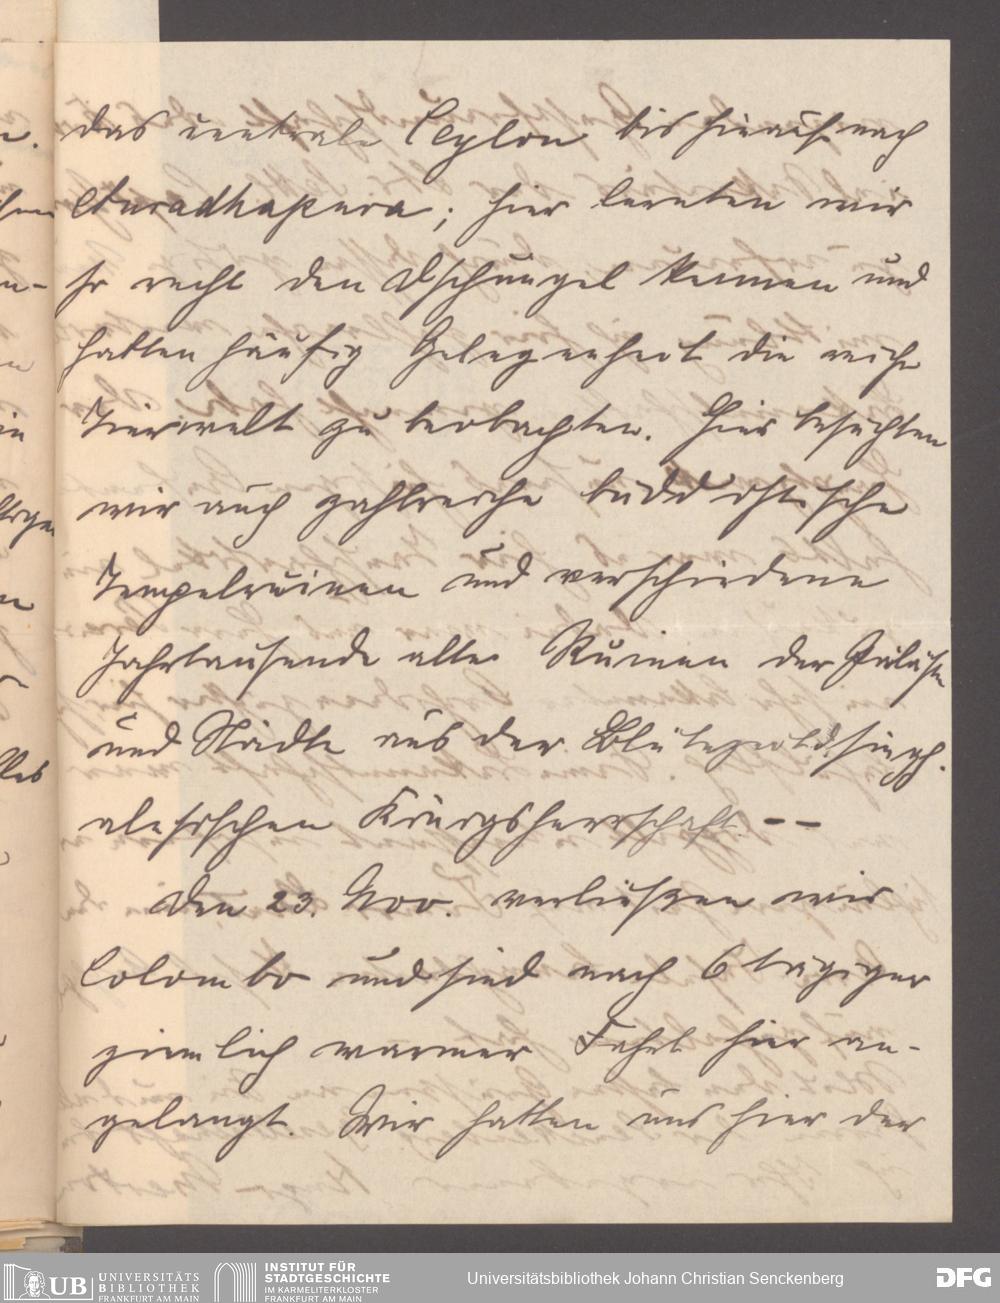 das centrale Ceylon bis hinauf nach
Anuradhapura; hier lernten wir
so recht den Dschungel kennen und
hatten häufig Gelegenheit die reiche
Tierwelt zu beobachten. Hier besuchten
wir auch zahlreiche buddhistische
Tempelruinen und verschiedene
Jahrtausende alte Ruinen der Paläste
und Städte aus der Blütezeit d. singh-
alesischen Königsherrschaft. --
Den 23. Nov. verließen wir
Colombo und sind nach 6 tägiger
ziemlich warmer Fahrt hier an-
gelangt. Wir hatten uns hier der
UB UNIVERSITÄTS
BIBLIOTHEK
FRANKFURT AM MAIN
INSTITUT FÜR
STADTGESCHICHTE
IM KARMELITERKLOSTER
FRANKFURT AM MAIN
Universitätsbibliothek Johann Christian Senckenberg
DFG